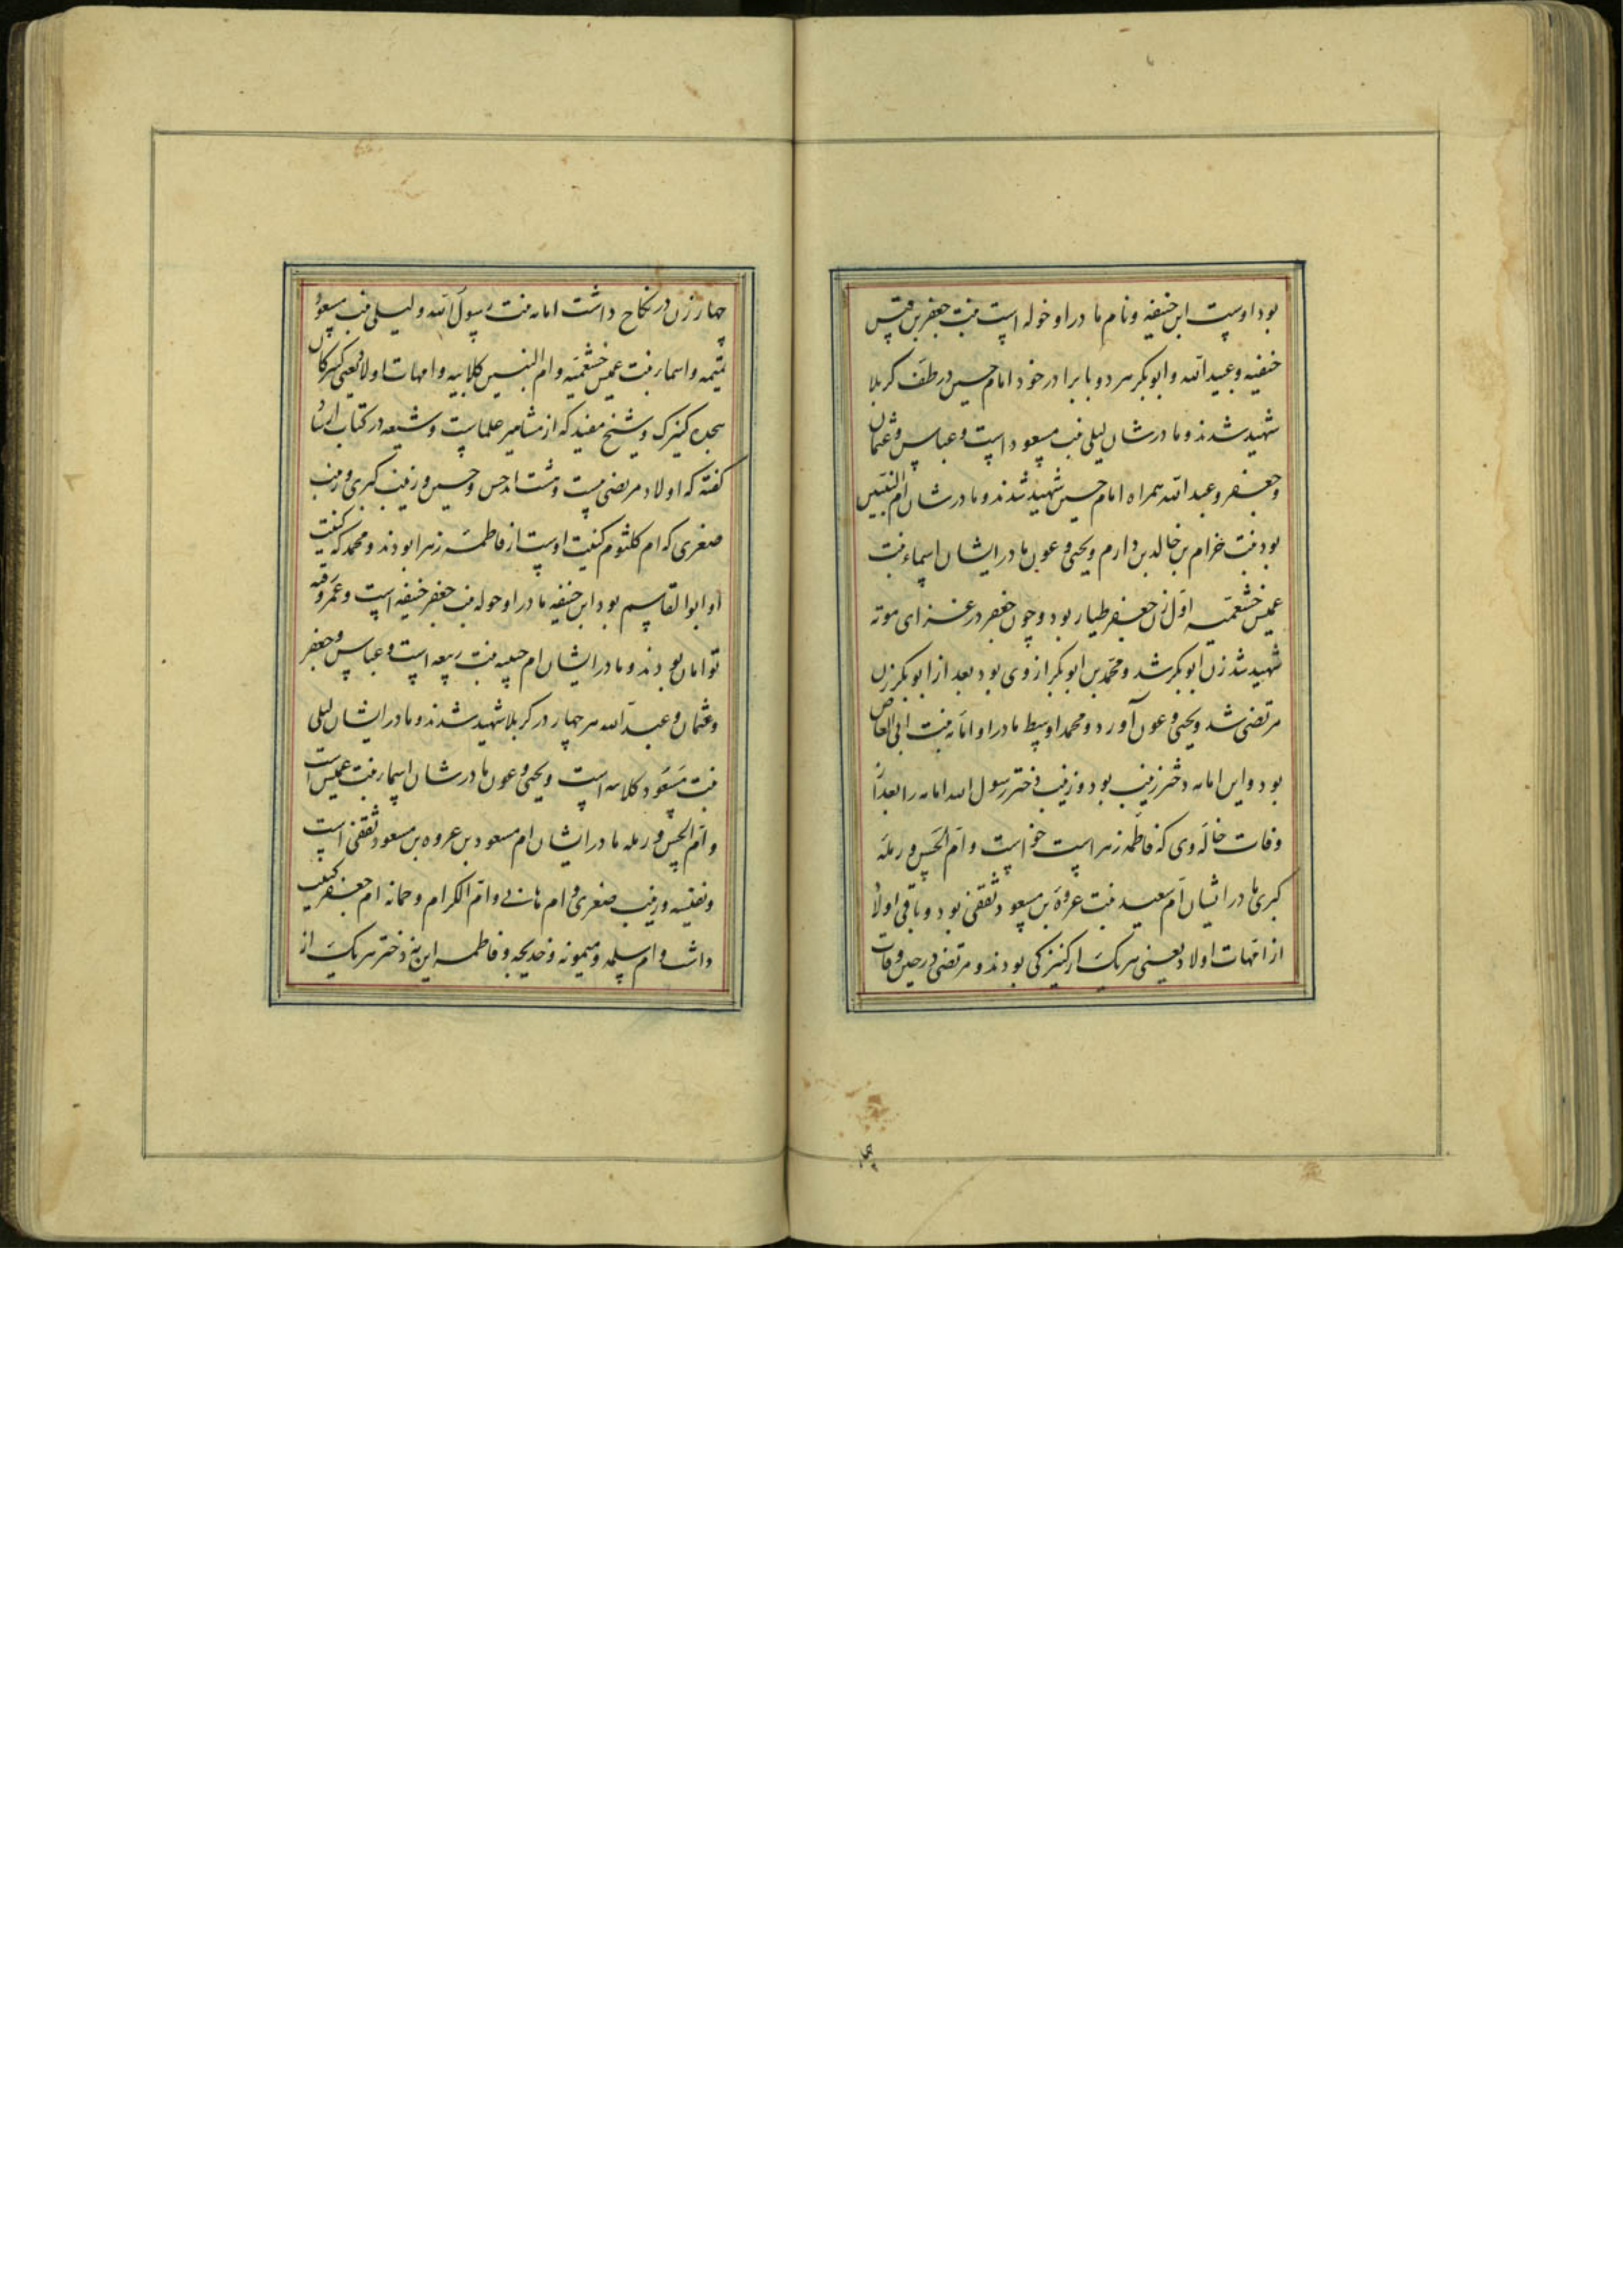 بود اوست ابن حنفیه و نام مادر او خوله است بنت جعفر بن قیس
حنفیه و عبید الله و ابوبکر هر دو با برادر خود امام حسین در طف کربلا
شهید شدند و مادرشان لیلی بنت مسعود است و عباس و عثمان
و جعفر و عبد الله همراه امام حسین شهید شدند و مادرشان ام البنین
بود بنت خرام بن خالد بن دارم و یحیی و عون مادر ایشان اسماء بنت
عمیس خثعمیه اول زن جعفر طیار بود و چون جعفر در غزای موته
شهید شد زن ابوبکر شد و محمد بن ابوبکر از وی بود بعد از ابوبکر زن
مرتضی شد و یحیی و عون آورد و محمد اوسط مادر او امامه بنت ابی العاص
بود و این امامه دختر زینب بود و زینب دختر رسول الله امامه را بعد از
وفات خاله وی که فاطمه زهراست خواست و ام الحسن و رمله
کبری مادر ایشان ام سعید بنت عروة بن مسعود ثقفی بود و باقی اولاد
از امهات اولاد یعنی هر یک از کنیزکی بودند و مرتضی در حین وفات
چهار زن در نکاح داشت امامه بنت رسول الله و لیلی بنت مسعود
تمیمه و اسماء بنت عمیس خثعمیه و ام البنین کلابیه و امهات اولاد یعنی کنیزکان
هجده کنیزک و شیخ مفید که از مشاهیر علماست و شیعه در کتاب ارشاد
گفته که اولاد مرتضی بیست و هشت اند حسن و حسین و زینب کبری و زینب
صغری که ام کلثوم کنیت اوست از فاطمه زهرا بودند و محمد که کنیت
او ابوالقاسم بود ابن حنفیه مادر او خوله بنت جعفر حنفیه است و عمر و رقیه
توامان بودند و مادر ایشان ام حبیبه بنت ربیعه است و عباس و جعفر
و عثمان و عبد الله هر چهار در کربلا شهید شدند و مادر ایشان لیلی
بنت مسعود است و یحیی و عون مادرشان اسماء بنت عمیس است
و ام الحسن و رمله مادر ایشان ام مسعود بن عروه بن مسعود ثقفی است
و نفیسه و زینب صغری و ام هانی و ام الکرام و جمانه ام جعفر کنیت
داشت و ام سلمه و میمونه و خدیجه و فاطمه این نه دختر هر یک از